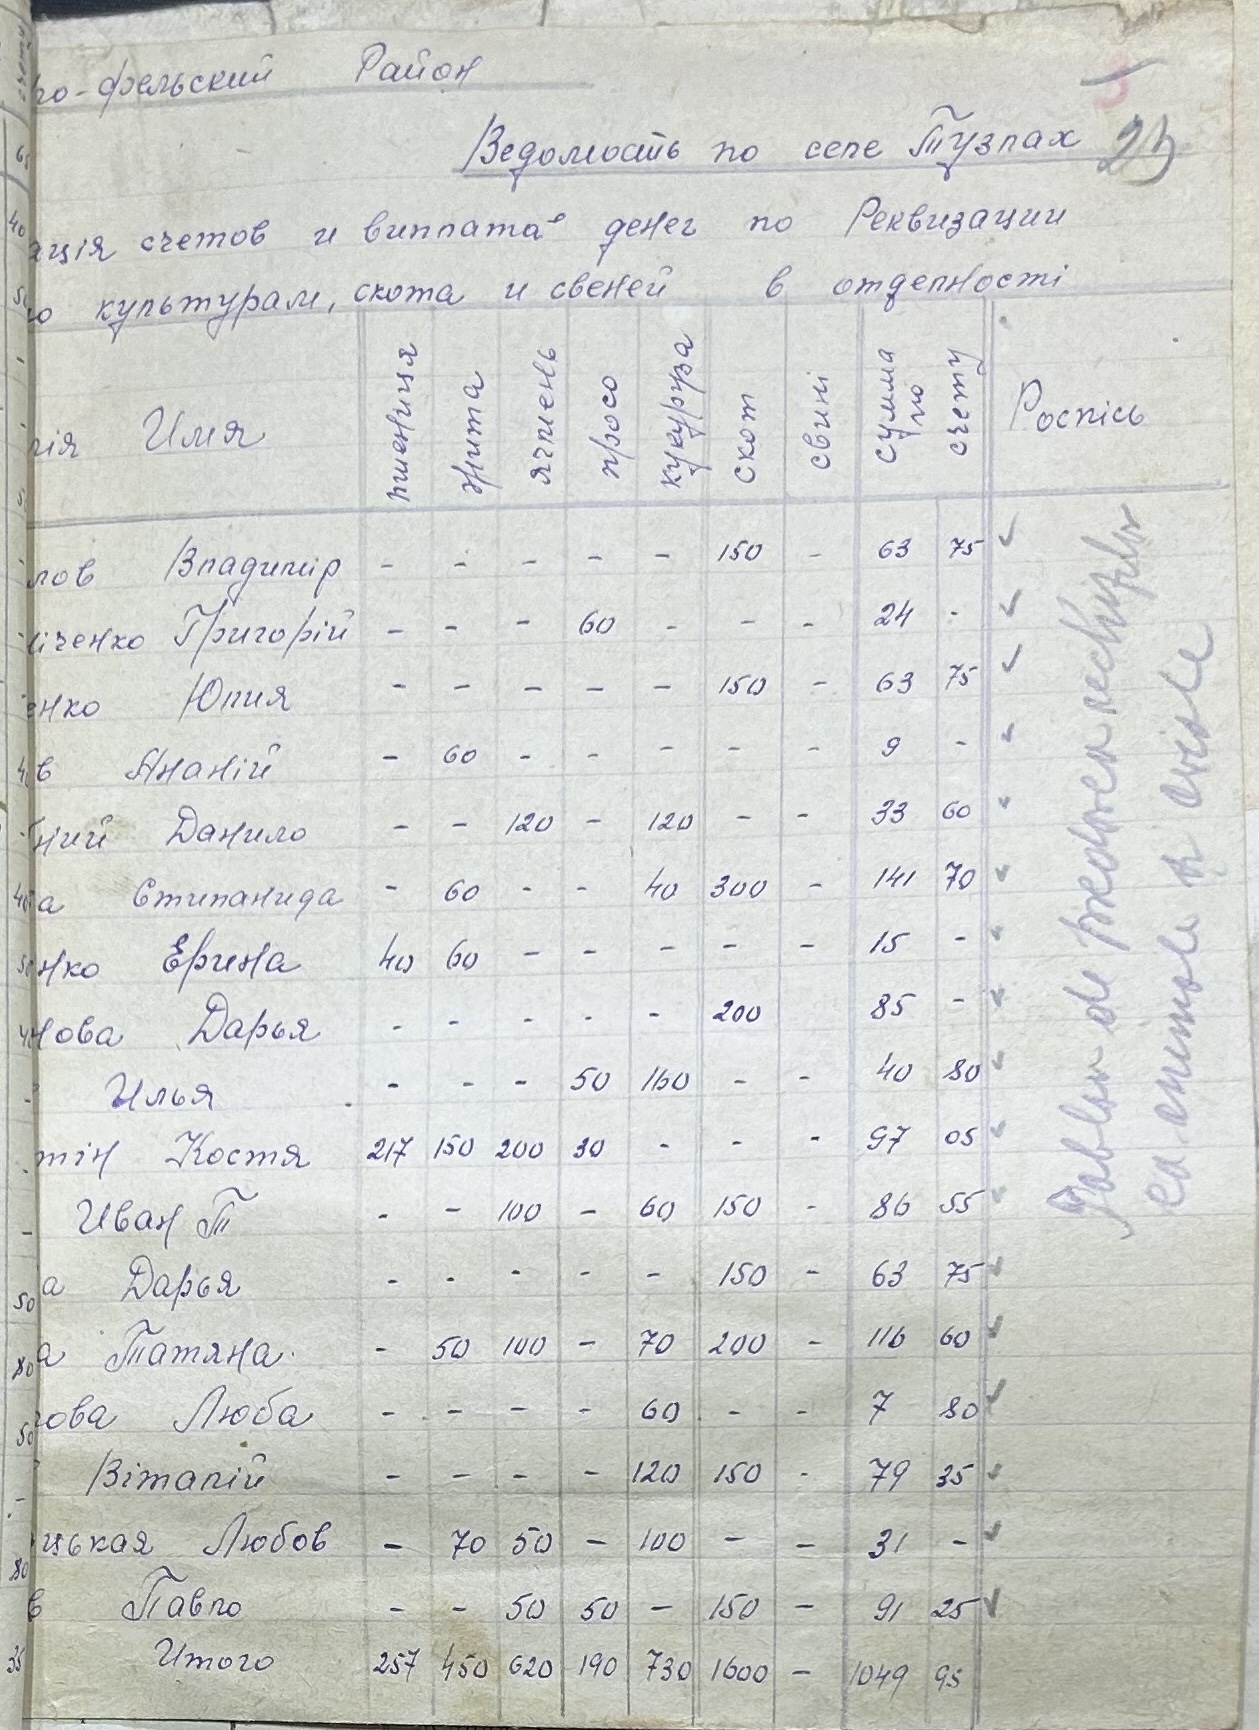 го-фельский Район
Ведомость по селе Тузлах
23
ація счетов и виплата денег по Реквизации
по культурам, скота и свеней в отделності
лія Имя пшениця жита ячмень просо кукуруза скот свині сумма по счету Роспісь
лов Владимір - - - - - 150 - 63 75
іченко Григорій - - - 60 - - - 24 -
енко Юлия - - - - - 150 - 63 75
в Ананій - 60 - - - - - 9 -
ний Данило - - 120 - 120 - - 33 60
а Стипанида - 60 - - 40 300 - 141 70
нко Ерина 40 60 - - - - - 15 -
нова Дарья - - - - - 200 85 -
Илья - - - 50 160 - - 40 80
тін Костя 217 150 200 30 - - - 97 05
Иван Т - - 100 - 60 150 - 86 55
а Дарья - - - - - 150 - 63 75
а Татяна - 50 100 - 70 200 - 116 60
гова Люба - - - - 60 - - 7 80
Віталій - - - - 120 150 - 79 35
цькая Любов - 70 50 - 100 - - 31 -
в Павло - - 50 50 - 150 - 91 25
Итого 257 450 620 190 730 1600 - 1049 95
de